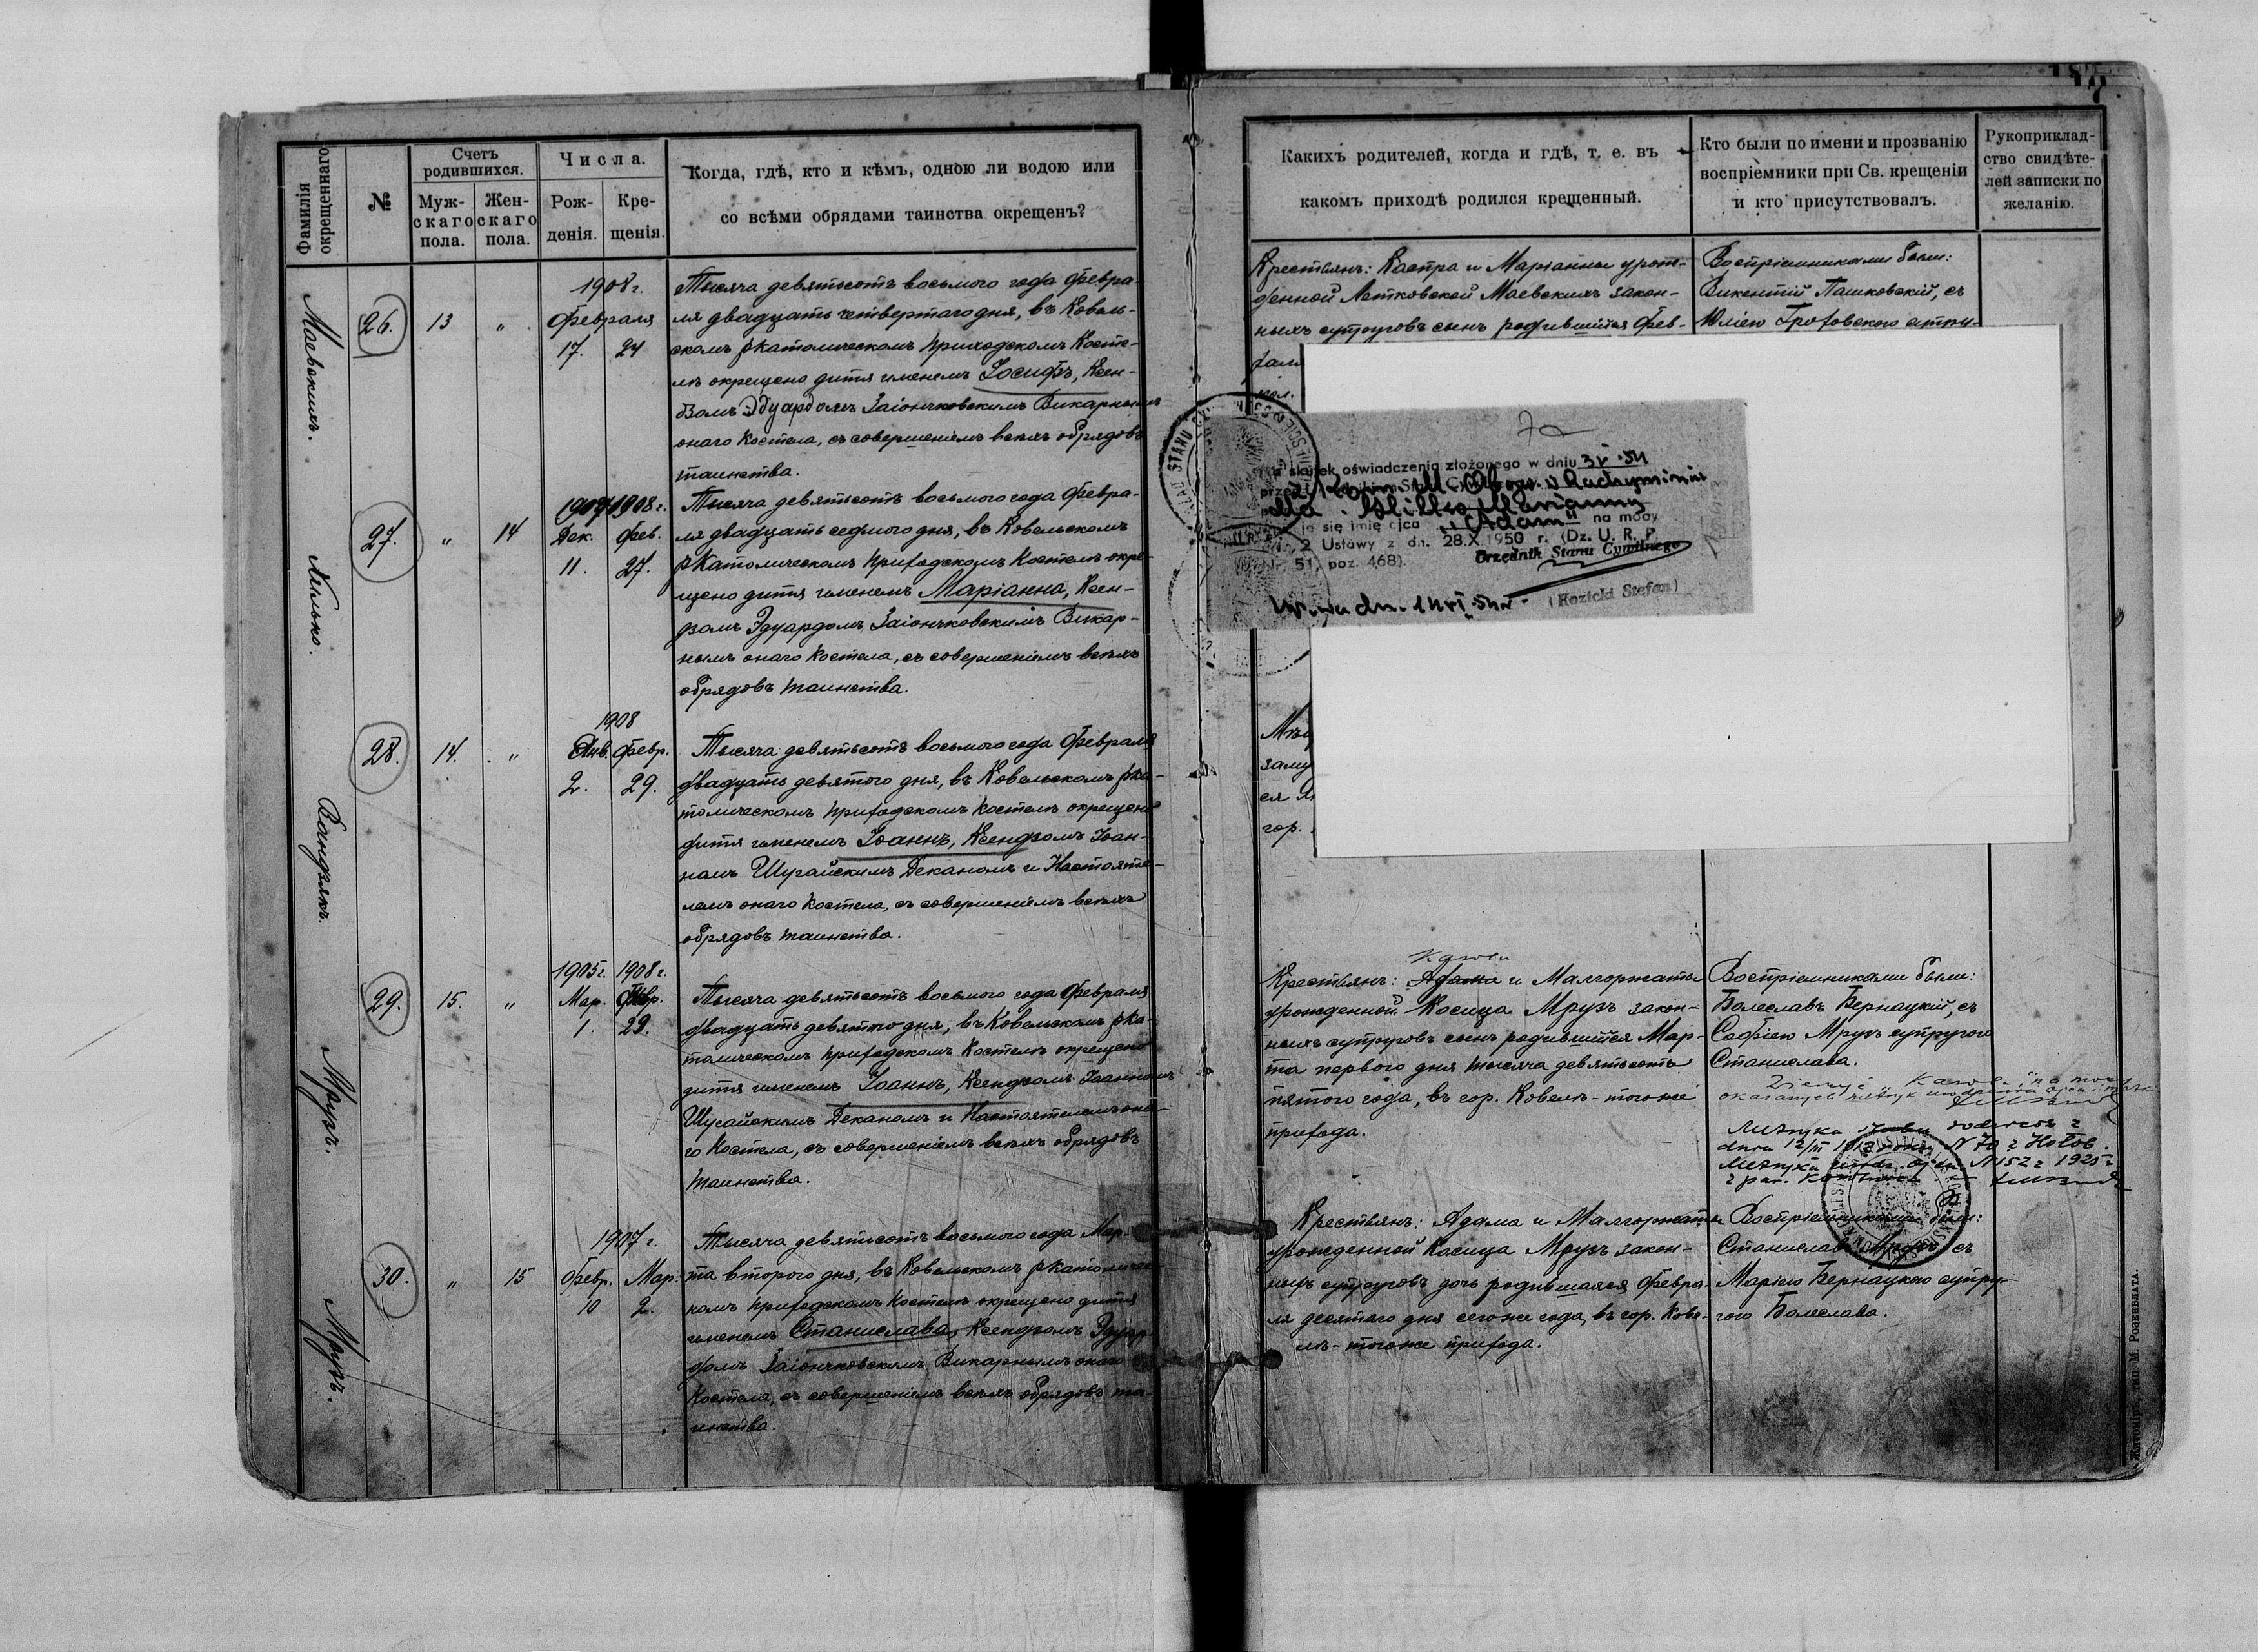 Фамилія окрещеннаго
№
Счетъ родившихся.
Муж-скаго пола.
Жен-скаго пола.
Числа.
Рож-денія.
Кре-щенія.
Когда, гдѣ, кто и кѣмъ, одною ли водою или
со всѣми обрядами таинства окрещенъ?
Маевскихъ.
26.
13
"
1908 г.
Февраля
17. 24
Тысяча девятьсотъ восьмого года Февра-
ля двадцать четвертаго дня, въ Ковель-
скомъ ркатолическомъ приходскомъ Косте-
лѣ окрещено дитя именемъ Іосифъ, Ксен-
дзомъ Эдуардомъ Заіончковскимъ Викарнымъ
онаго Костела, съ совершеніемъ всѣхъ обрядовъ
таинства.
27.
"
14
1907 1908 г.
Дек. Фев.
11. 27.
Тысяча девятьсотъ восьмого года Февра-
ля двадцать седмого дня, въ Ковельскомъ
ркатолическомъ приходскомъ Костелѣ окре-
щено дитя именемъ Маріанна, Ксен-
дзомъ Эдуардомъ Заіончковскимъ Викар-
нымъ онаго Костела, съ совершеніемъ всѣхъ
обрядовъ таинства.
28.
14.
"
1908
Янв. Февр.
2. 29.
Тысяча девятьсотъ восьмого года Февраля
двадцать девятого дня, въ Ковельскомъ рка-
толическомъ приходскомъ Костелѣ окрещено
дитя именемъ Іоаннъ, Ксендзомъ Іоан-
номъ Шугайскимъ Деканомъ и Настояте-
лемъ онаго Костела, съ совершеніемъ всѣхъ
обрядовъ таинства.
Мрузъ.
29.
15.
"
1905 г. 1908 г.
Мар. Февр.
1. 29.
Тысяча девятьсотъ восьмого года Февраля
двадцать девятого дня, въ Ковельскомъ рка-
толическомъ приходскомъ Костелѣ окрещено
дитя именемъ Іоаннъ, Ксендзомъ Іоанномъ
Шугайскимъ Деканомъ и Настоятелемъ она-
го Костела, съ совершеніемъ всѣхъ обрядовъ
таинства.
Мрузъ.
30.
"
15
1907 г.
Февр. Мар.
10 2.
Тысяча девятьсотъ восьмого года Мар-
та второго дня, въ Ковельскомъ ркатоличес-
комъ приходскомъ Костелѣ окрещено дитя
именемъ Станислава, Ксендзомъ Эдуар-
домъ Заіончковскимъ Викарнымъ онаго
Костела, съ совершеніемъ всѣхъ обрядовъ та-
инства.
Какихъ родителей, когда и гдѣ, т. е. въ
какомъ приходѣ родился крещенный.
Кто были по имени и прозванію
воспріемники при Св. крещеніи
и кто присутствовалъ.
Рукоприклад-
ство свидѣте-
лей записки по
желанію.
Крестьянъ: и Маріанны урож-
денной Маевскихъ закон-
ныхъ супруговъ сынъ родившійся Фев-
Воспріемниками были:
Викентій Пашковскій, съ
Юліею
oświadczenia złożonego w dniu
się imię ojca „Adam" na mocy
2 Ustawy z dn. 28.X 1950 r. (Dz. U. R. P.
Nr. 51, poz. 468).
Urzędnik Stanu Cywilnego
(Kozicki Stefan)
гор.
Крестьянъ: Адама и Малгоржаты
урожденной Косица Мрузъ закон-
ныхъ супруговъ сынъ родившійся Мар-
та первого дня тысяча девятьсотъ
пятого года, въ гор. Ковелѣ - тогоже
прихода.
Воспріемниками были:
Болеславъ Бернацкій, съ
Софіею Мрузъ супругою
Станислава.
Крестьянъ: Адама и Малгоржаты
урожденной Косица Мрузъ закон-
ныхъ супруговъ дочь родившаяся Февра-
ля десятаго дня сегоже года, въ гор. Кове-
лѣ - тогоже прихода.
Воспріемниками были:
Станиславъ Мрузъ съ
Маріею Бернацкою супру-
гою Болеслава.
Житоміръ, тип. М. Розенблата.